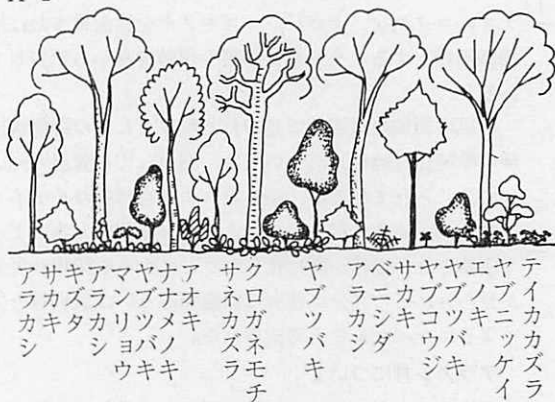 アラカシ
サカキ
キズタ
アラカシ
マンリョウ
ヤブツバキ
ナナメノキ
アオキ
サネカズラ
クロガネモチ
ヤブツバキ
アラカシ
ベニシダ
サカキ
ヤブコウジ
ヤブツバキ
エノキ
ヤブニッケイ
テイカカズラ